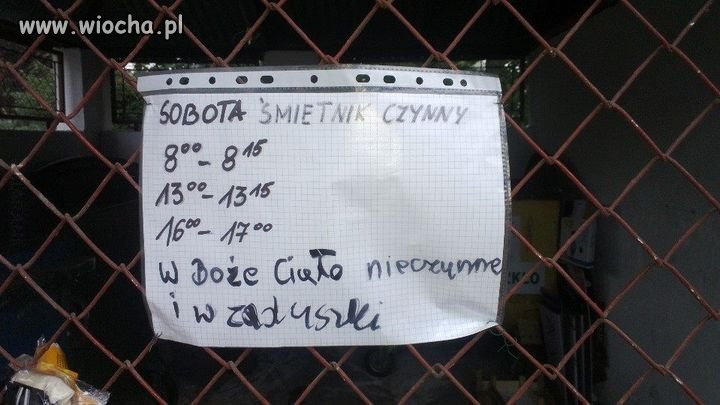 www.wiocha.pl
SOBOTA ŚMIETNIK CZYNNY
8⁰⁰-8¹⁵
13⁰⁰-13¹⁵
16⁰⁰-17⁰⁰
W Boże Ciało nieczynne
i w zaduszki